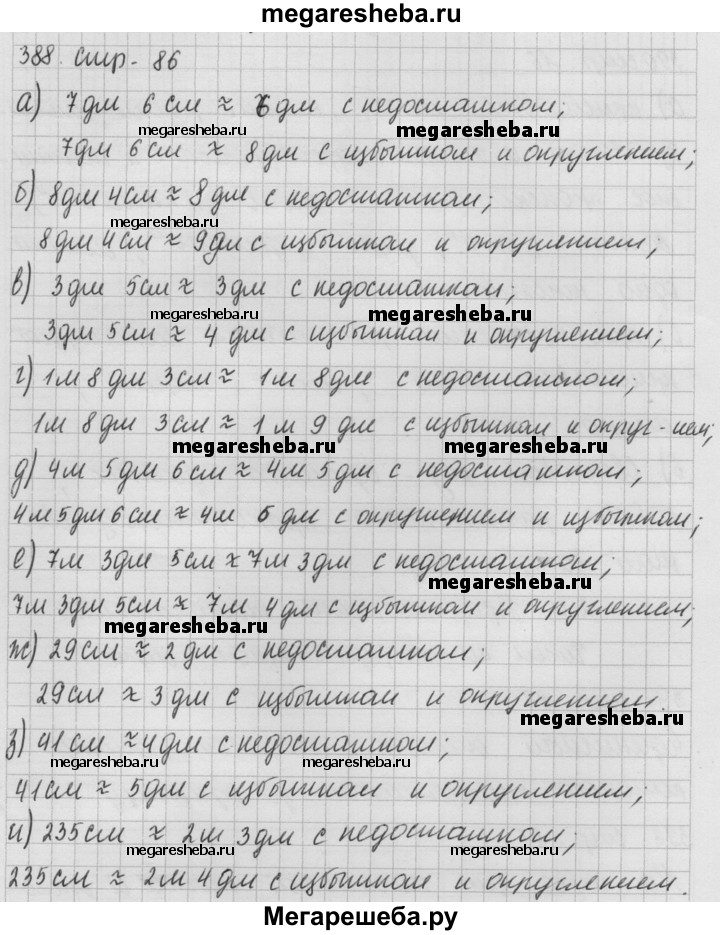 megaresheba.ru
388. стр. 86
а) 7дм 6см ≈ 7дм с недостатком;
megaresheba.ru megaresheba.ru
7дм 6см ≈ 8дм с избытком и округлением;
б) 8дм 4см ≈ 8дм с недостатком;
megaresheba.ru
8дм 4см ≈ 9дм с избытком и округлением;
в) 3дм 5см ≈ 3дм с недостатком;
megaresheba.ru megaresheba.ru
3дм 5см ≈ 4дм с избытком и округлением;
г) 1м 8дм 3см ≈ 1м 8дм с недостатком;
1м 8дм 3см ≈ 1м 9дм с избытком и округ-ием;
megaresheba.ru megaresheba.ru
д) 4м 5дм 6см ≈ 4м 5дм с недостатком;
4м 5дм 6см ≈ 4м 6дм с округлением и избытком;
е) 7м 3дм 5см ≈ 7м 3дм с недостатком;
megaresheba.ru
7м 3дм 5см ≈ 7м 4дм с избытком и округлением;
megaresheba.ru
ж) 29см ≈ 2дм с недостатком;
29см ≈ 3дм с избытком и округлением.
megaresheba.ru
з) 41см ≈ 4дм с недостатком;
megaresheba.ru megaresheba.ru
41см ≈ 5дм с избытком и округлением;
и) 235см ≈ 2м 3дм с недостатком;
megaresheba.ru megaresheba.ru
235см ≈ 2м 4дм с избытком и округлением.
Мегарешеба.ру